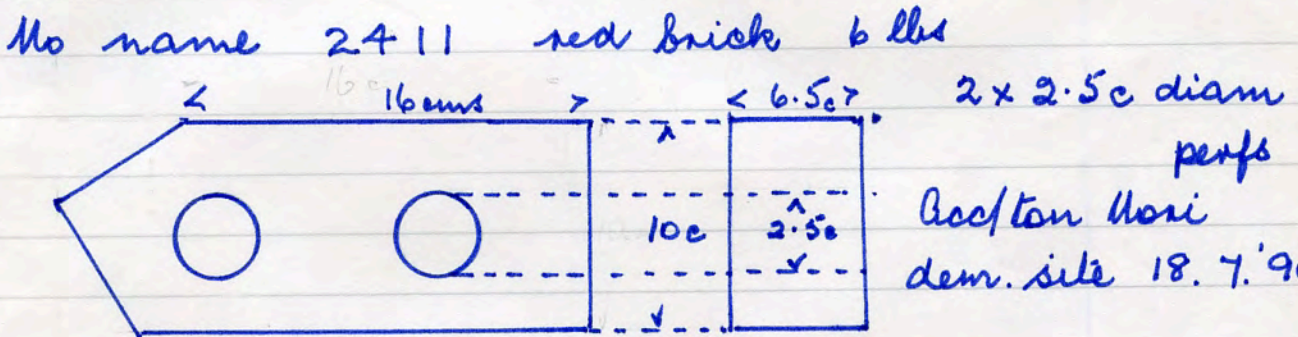 No name 2411 red brick 6 lbs
16c
< 16cms > < 6.5c> 2 x 2.5c diam
perfs
10c 2.5c Acc/ton Mori
dem. site 18.7.'9